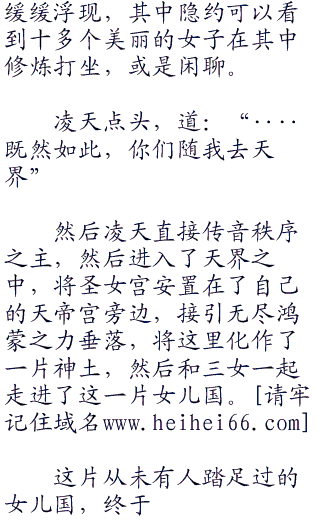 缓缓浮现，其中隐约可以看
到十多个美丽的女子在其中
修炼打坐，或是闲聊。
凌天点头，道：“····
既然如此，你们随我去天
界”
然后凌天直接传音秩序
之主，然后进入了天界之
中，将圣女宫安置在了自己
的天帝宫旁边，接引无尽鸿
蒙之力垂落，将这里化作了
一片神土，然后和三女一起
走进了这一片女儿国。[请牢
记住域名www.heihei66.com]
这片从未有人踏足过的
女儿国，终于